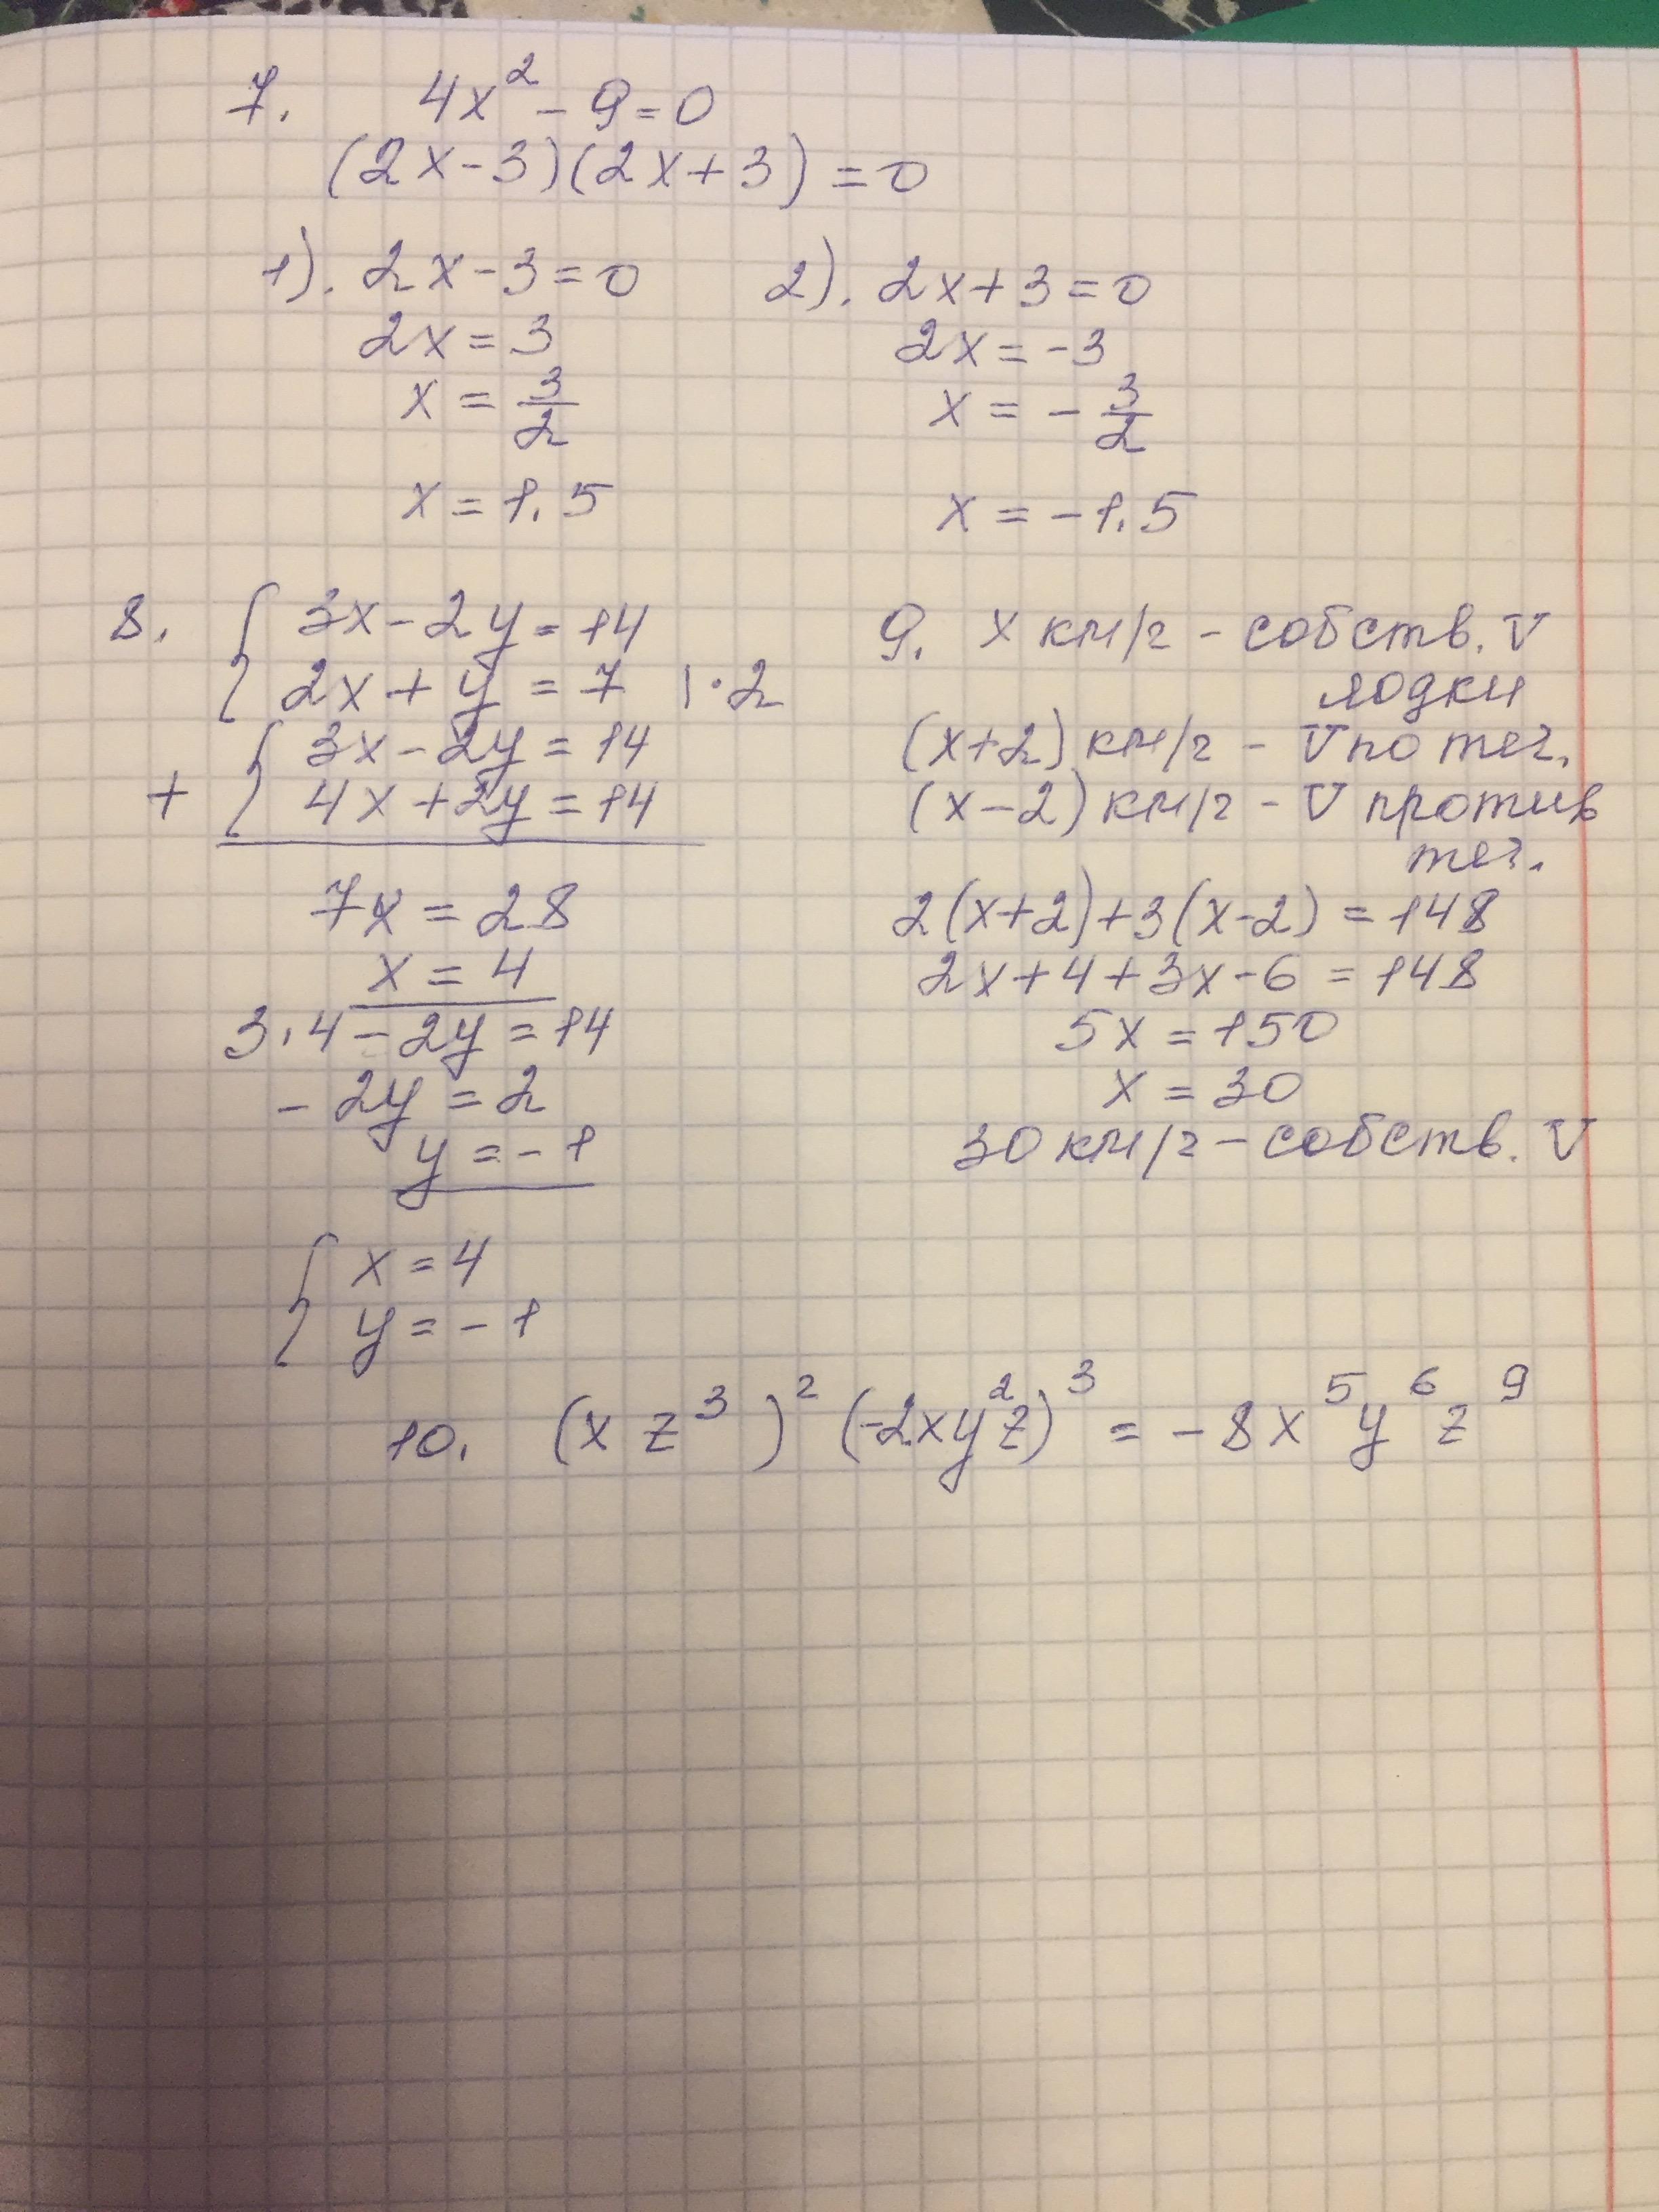 7. 4x² - 9 = 0
(2x-3)(2x+3) = 0
1). 2x-3=0
2x = 3
x = 3/2
x = 1.5
2). 2x+3=0
2x = -3
x = - 3/2
x = -1.5
8. { 3x-2y=14
2x+y=7 |·2
+ { 3x-2y=14
4x+2y=14
7x = 28
x = 4
3·4-2y=14
-2y=2
y=-1
{ x=4
y=-1
9. x км/г - собств. V
лодки
(x+2) км/г - V по теч.
(x-2) км/г - V против
теч.
2(x+2)+3(x-2) = 148
2x+4+3x-6 = 148
5x = 150
x = 30
30 км/г - собств. V
10. (x z³ )² (-2xy²z)³ = -8x⁵y⁶z⁹